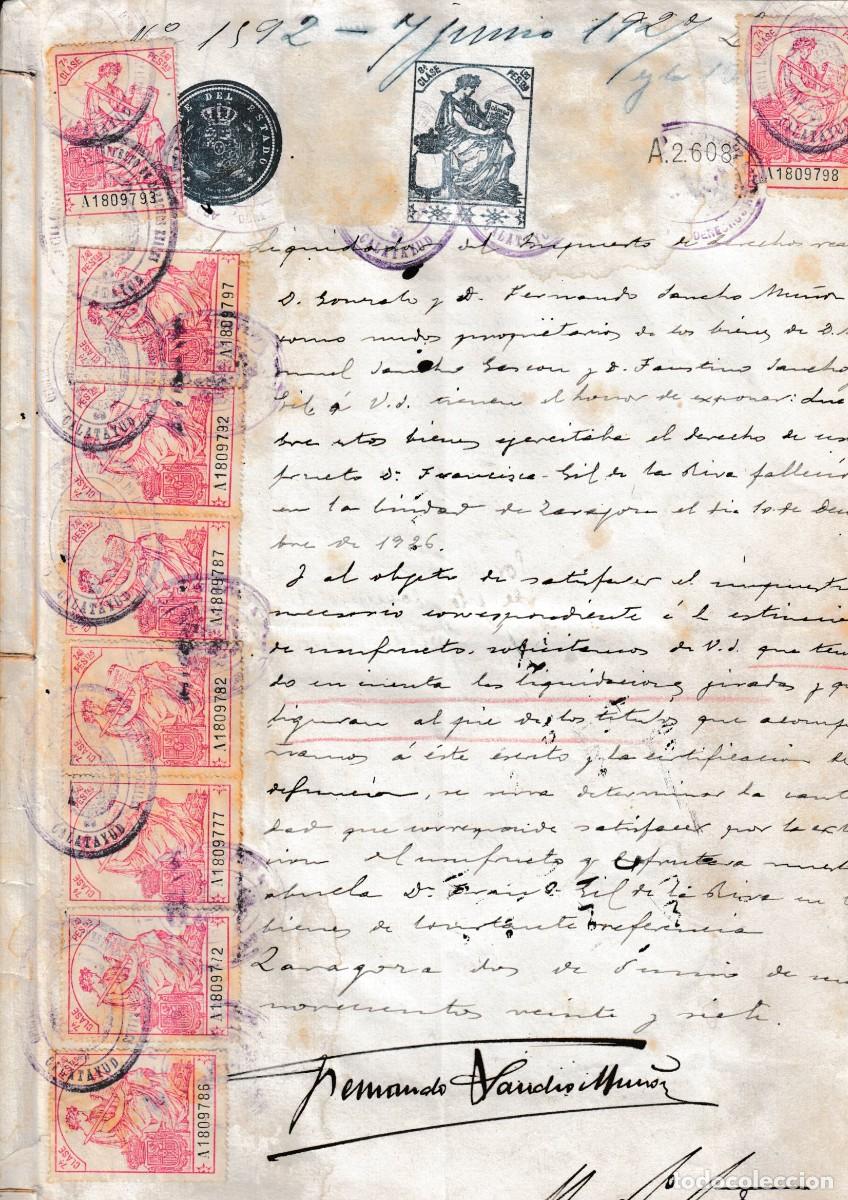 Nº 1592 - 7 junio 1927
7ª CLASE
PESETAS
A1809793
DEL ESTADO
8ª CLASE
PESETAS
A.2.608
7ª CLASE
A1809798
CALATAYUD
Liquidador del Impuesto de derechos rea
D. Gonzalo y D. Fernando Sancho Muñoz
como nudos propietarios de los bienes de D.
nuel Sancho Gascon y D. Faustino Sancho
Gil á V.S. tienen el honor de exponer: Que
bre estos bienes ejercitaba el derecho de usu
fructo Dª Francisca Gil de la Riva fallecio
en la Ciudad de Zaragoza el dia 10 de Diciem
bre de 1926.
Y al objeto de satisfacer el impuesto
necesario correspondiente á la extincion
de usufructo, solicitamos de V.S. que tenien
do en cuenta las liquidaciones giradas y que
figuran al pie de los titulos que acompa
ñamos á éste escrito y la certificacion de
defuncion, se sirva determinar la canti
dad que corresponde satisfacer por la extin
cion del usufructo y disfrutara nuestra
abuela Dª Franᶜᵃ Gil de la Riva en
bienes de constante referencia
Zaragoza dos de Junio de mil
novecientos veinte y siete.
Fernando Sancho Muñoz
A1809797
A1809792
A1809787
A1809782
A1809777
A1809772
A1809786
CALATAYUD
todocoleccion